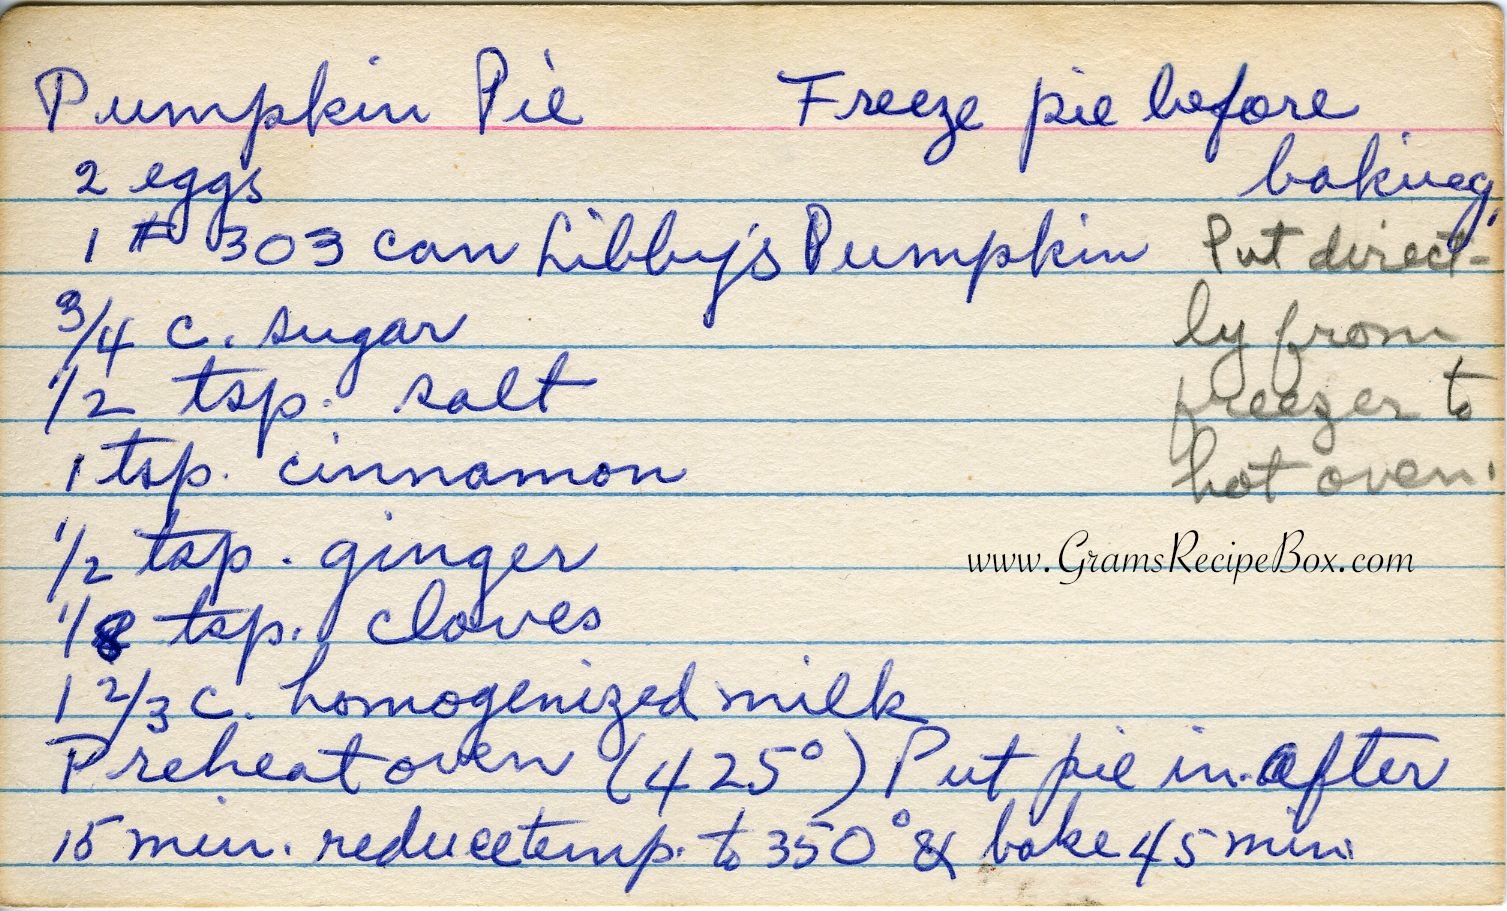 Pumpkin Pie Freeze pie before
baking.
2 eggs
1 # 303 can Libby's Pumpkin Put direct-
3/4 c. sugar ly from
1/2 tsp. salt freezer to
1 tsp. cinnamon hot oven.
1/2 tsp. ginger www.GramsRecipeBox.com
1/8 tsp. cloves
1 2/3 c. homogenized milk
Preheat oven (425°) Put pie in. After
15 min. reduce temp. to 350° & bake 45 min.